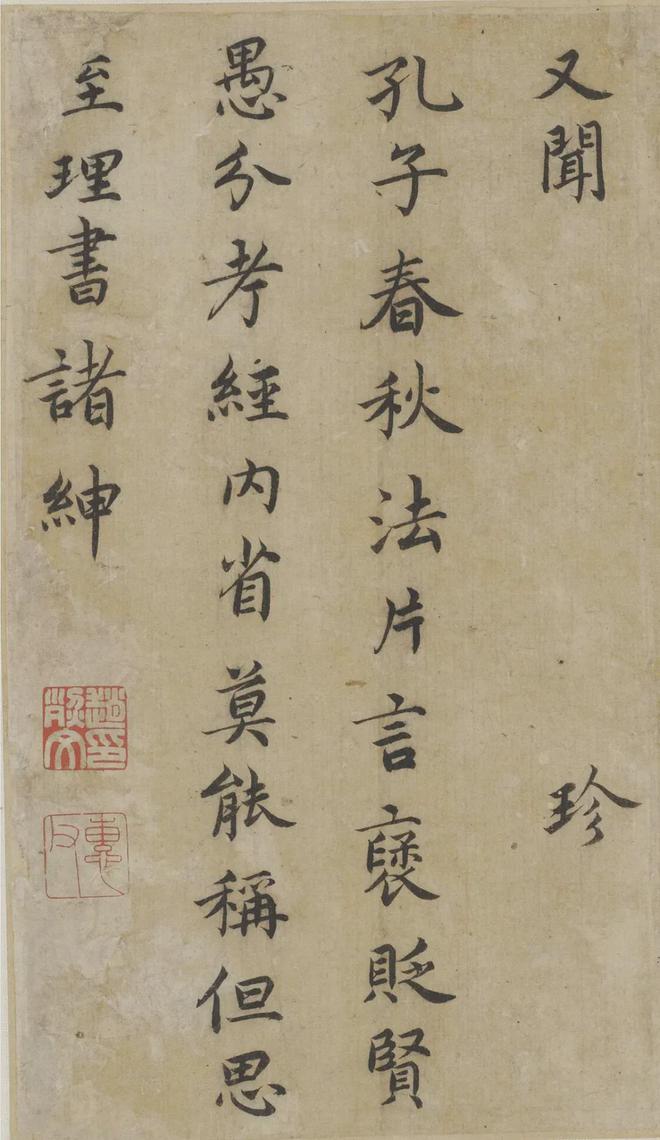 又聞 珍
孔子春秋法片言褒貶賢
愚分考經内省莫能稱但思
至理書諸紳